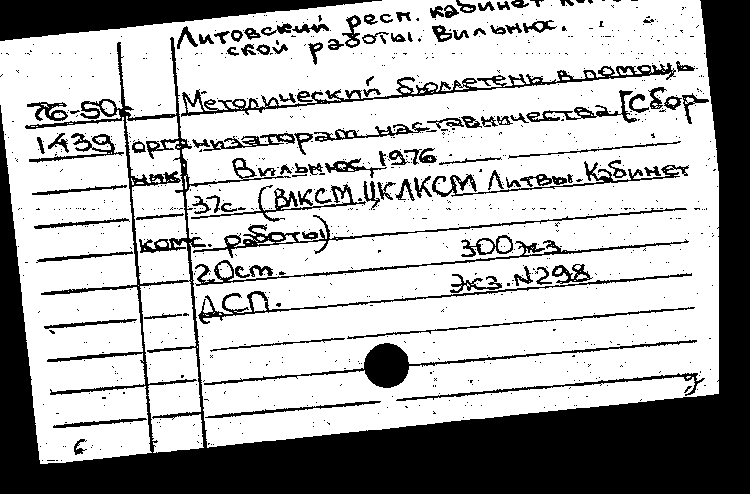 Литовский респ. кабинет
ской работы. Вильнюс.
76-50с Методический бюллетень в помощь
1439 организаторам наставничества [Сбор-
ник] Вильнюс, 1976
37с. (ВЛКСМ.ЦКЛКСМ Литвы. Кабинет
комс. работы)
20см. 300экз
ДСП. Экз.N298